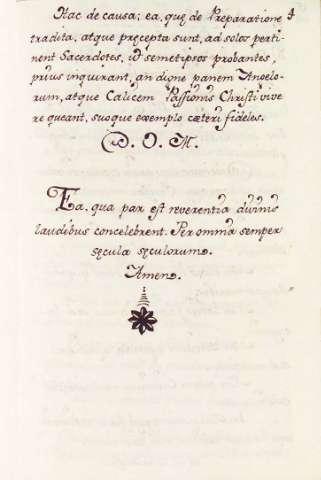 Hac de causa; ea, quę de Pręparatione
tradita, atque pręcepta sunt, ad solos perti-
nent Sacerdotes, id semetipsos probantes,
prius inquirant, an digne panem Angelo-
rum, atque Calicem Passionis Christi vive
re queant, suoque exemplo cæteri fideles.
D. O. M.
Ea, qua par est reverentia divinis
laudibus concelebrent. Per omnia semper
sęcula sęculorum.
Amen.